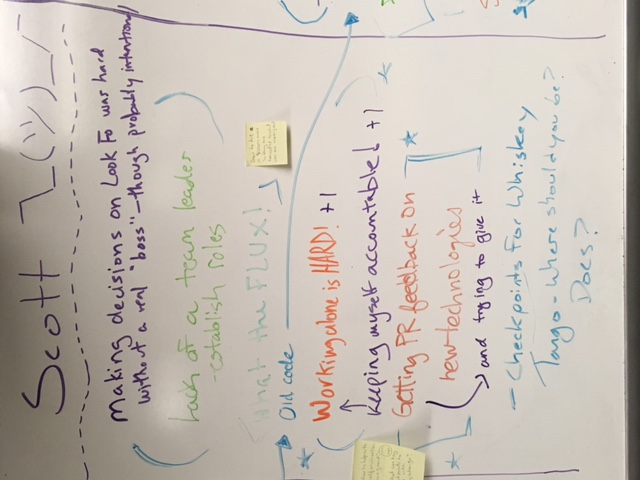 Scott ¯\_(ツ)_/¯
Making decisions on Look Fo was hard
without a real "boss" - though probably intentional
Lack of a team leader
- establish roles
What the FLUX!
Old code
Working alone is HARD! +1
Keeping myself accountable! +1
Getting PR feedback on
new technologies
and trying to give it
- Checkpoints for Whiskey
Tango - Where should you be?
Does?